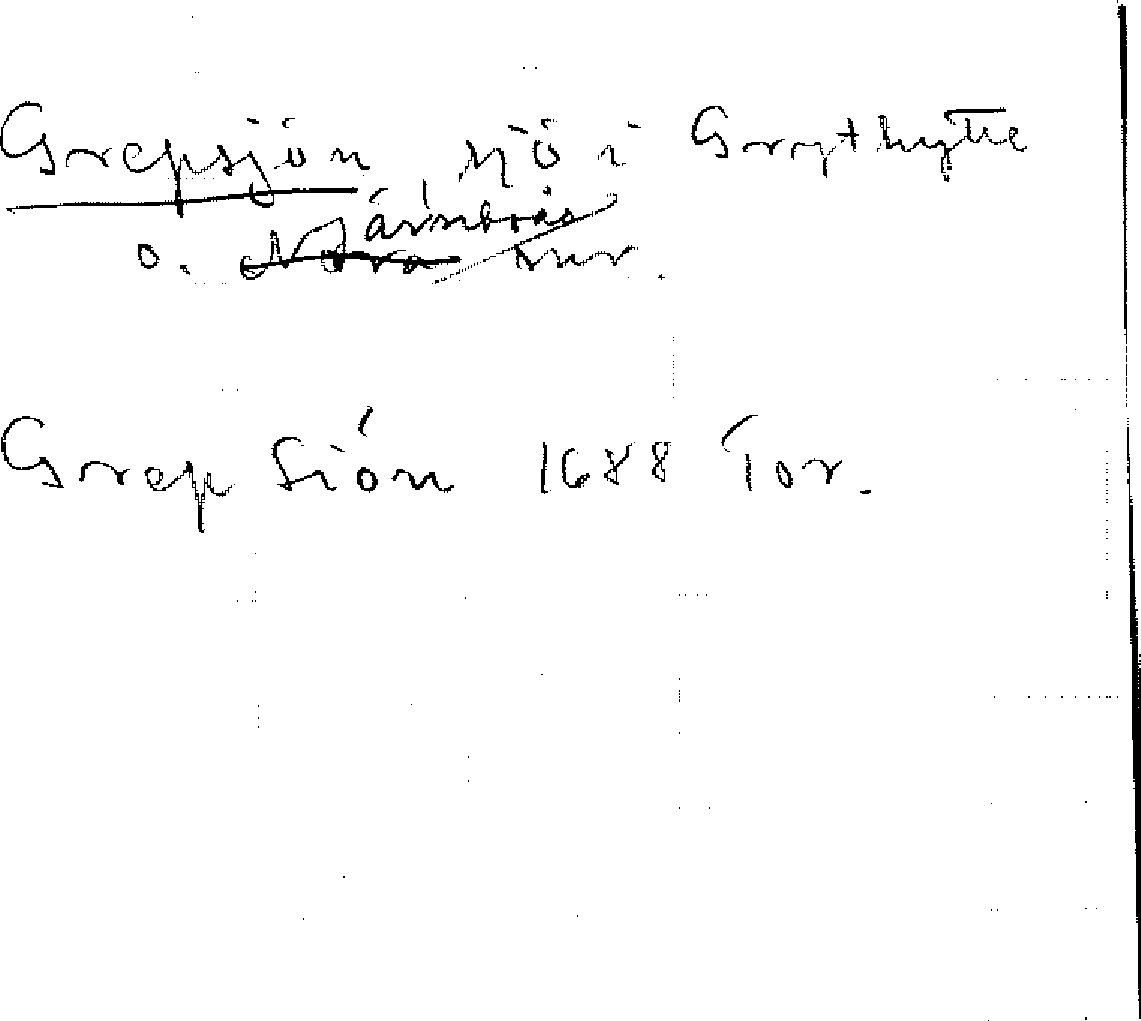 Grepsjön sjö i Grythytte
Järnboås
o. Nora snr.
Grep Siön 1688 Tor.